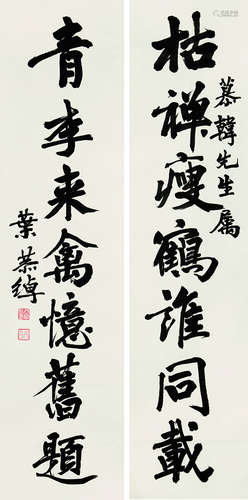 枯禅瘦鶴誰同載
慕韓先生屬
青李来禽憶舊題
葉恭綽